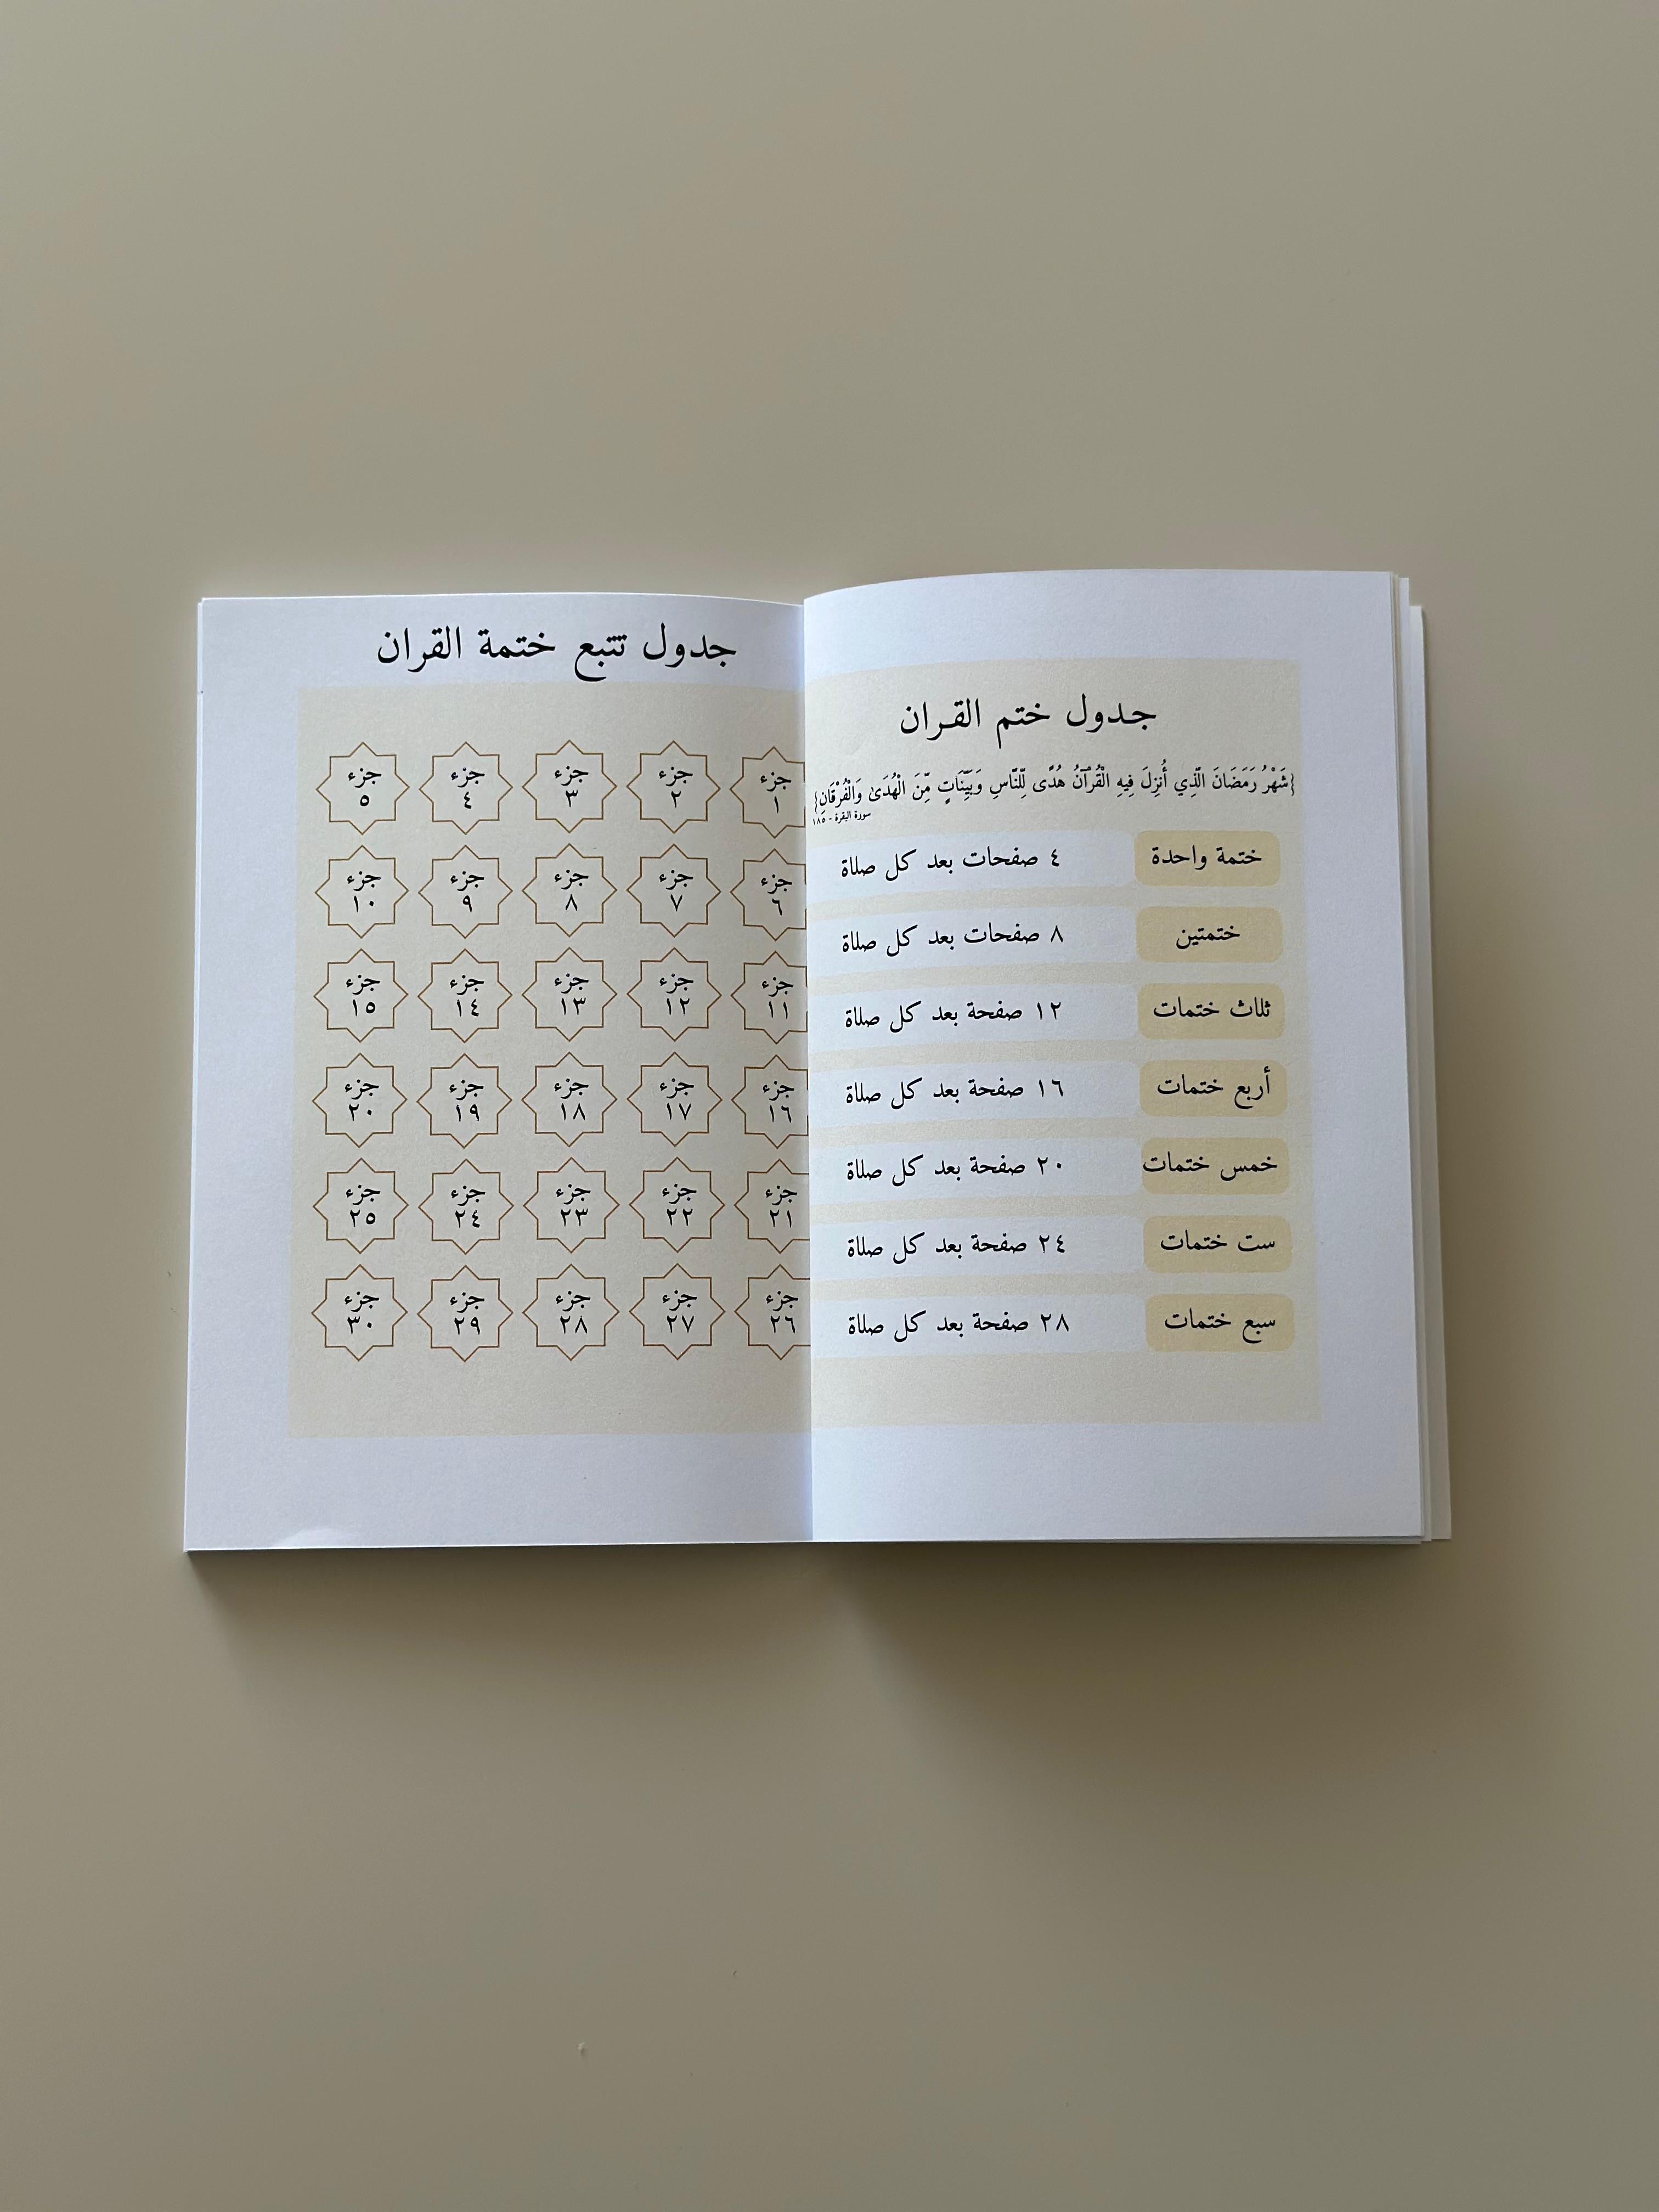 جدول ختم القران
{شَهْرُ رَمَضَانَ الَّذِي أُنزِلَ فِيهِ الْقُرْآنُ هُدًى لِّلنَّاسِ وَبَيِّنَاتٍ مِّنَ الْهُدَىٰ وَالْفُرْقَانِ}
سورة البقرة - ١٨٥
ختمة واحدة ٤ صفحات بعد كل صلاة
ختمتين ٨ صفحات بعد كل صلاة
ثلاث ختمات ١٢ صفحة بعد كل صلاة
أربع ختمات ١٦ صفحة بعد كل صلاة
خمس ختمات ٢٠ صفحة بعد كل صلاة
ست ختمات ٢٤ صفحة بعد كل صلاة
سبع ختمات ٢٨ صفحة بعد كل صلاة
جدول تتبع ختمة القران
جزء جزء جزء جزء جزء
١ ٢ ٣ ٤ ٥
جزء جزء جزء جزء جزء
٦ ٧ ٨ ٩ ١٠
جزء جزء جزء جزء جزء
١١ ١٢ ١٣ ١٤ ١٥
جزء جزء جزء جزء جزء
١٦ ١٧ ١٨ ١٩ ٢٠
جزء جزء جزء جزء جزء
٢١ ٢٢ ٢٣ ٢٤ ٢٥
جزء جزء جزء جزء جزء
٢٦ ٢٧ ٢٨ ٢٩ ٣٠